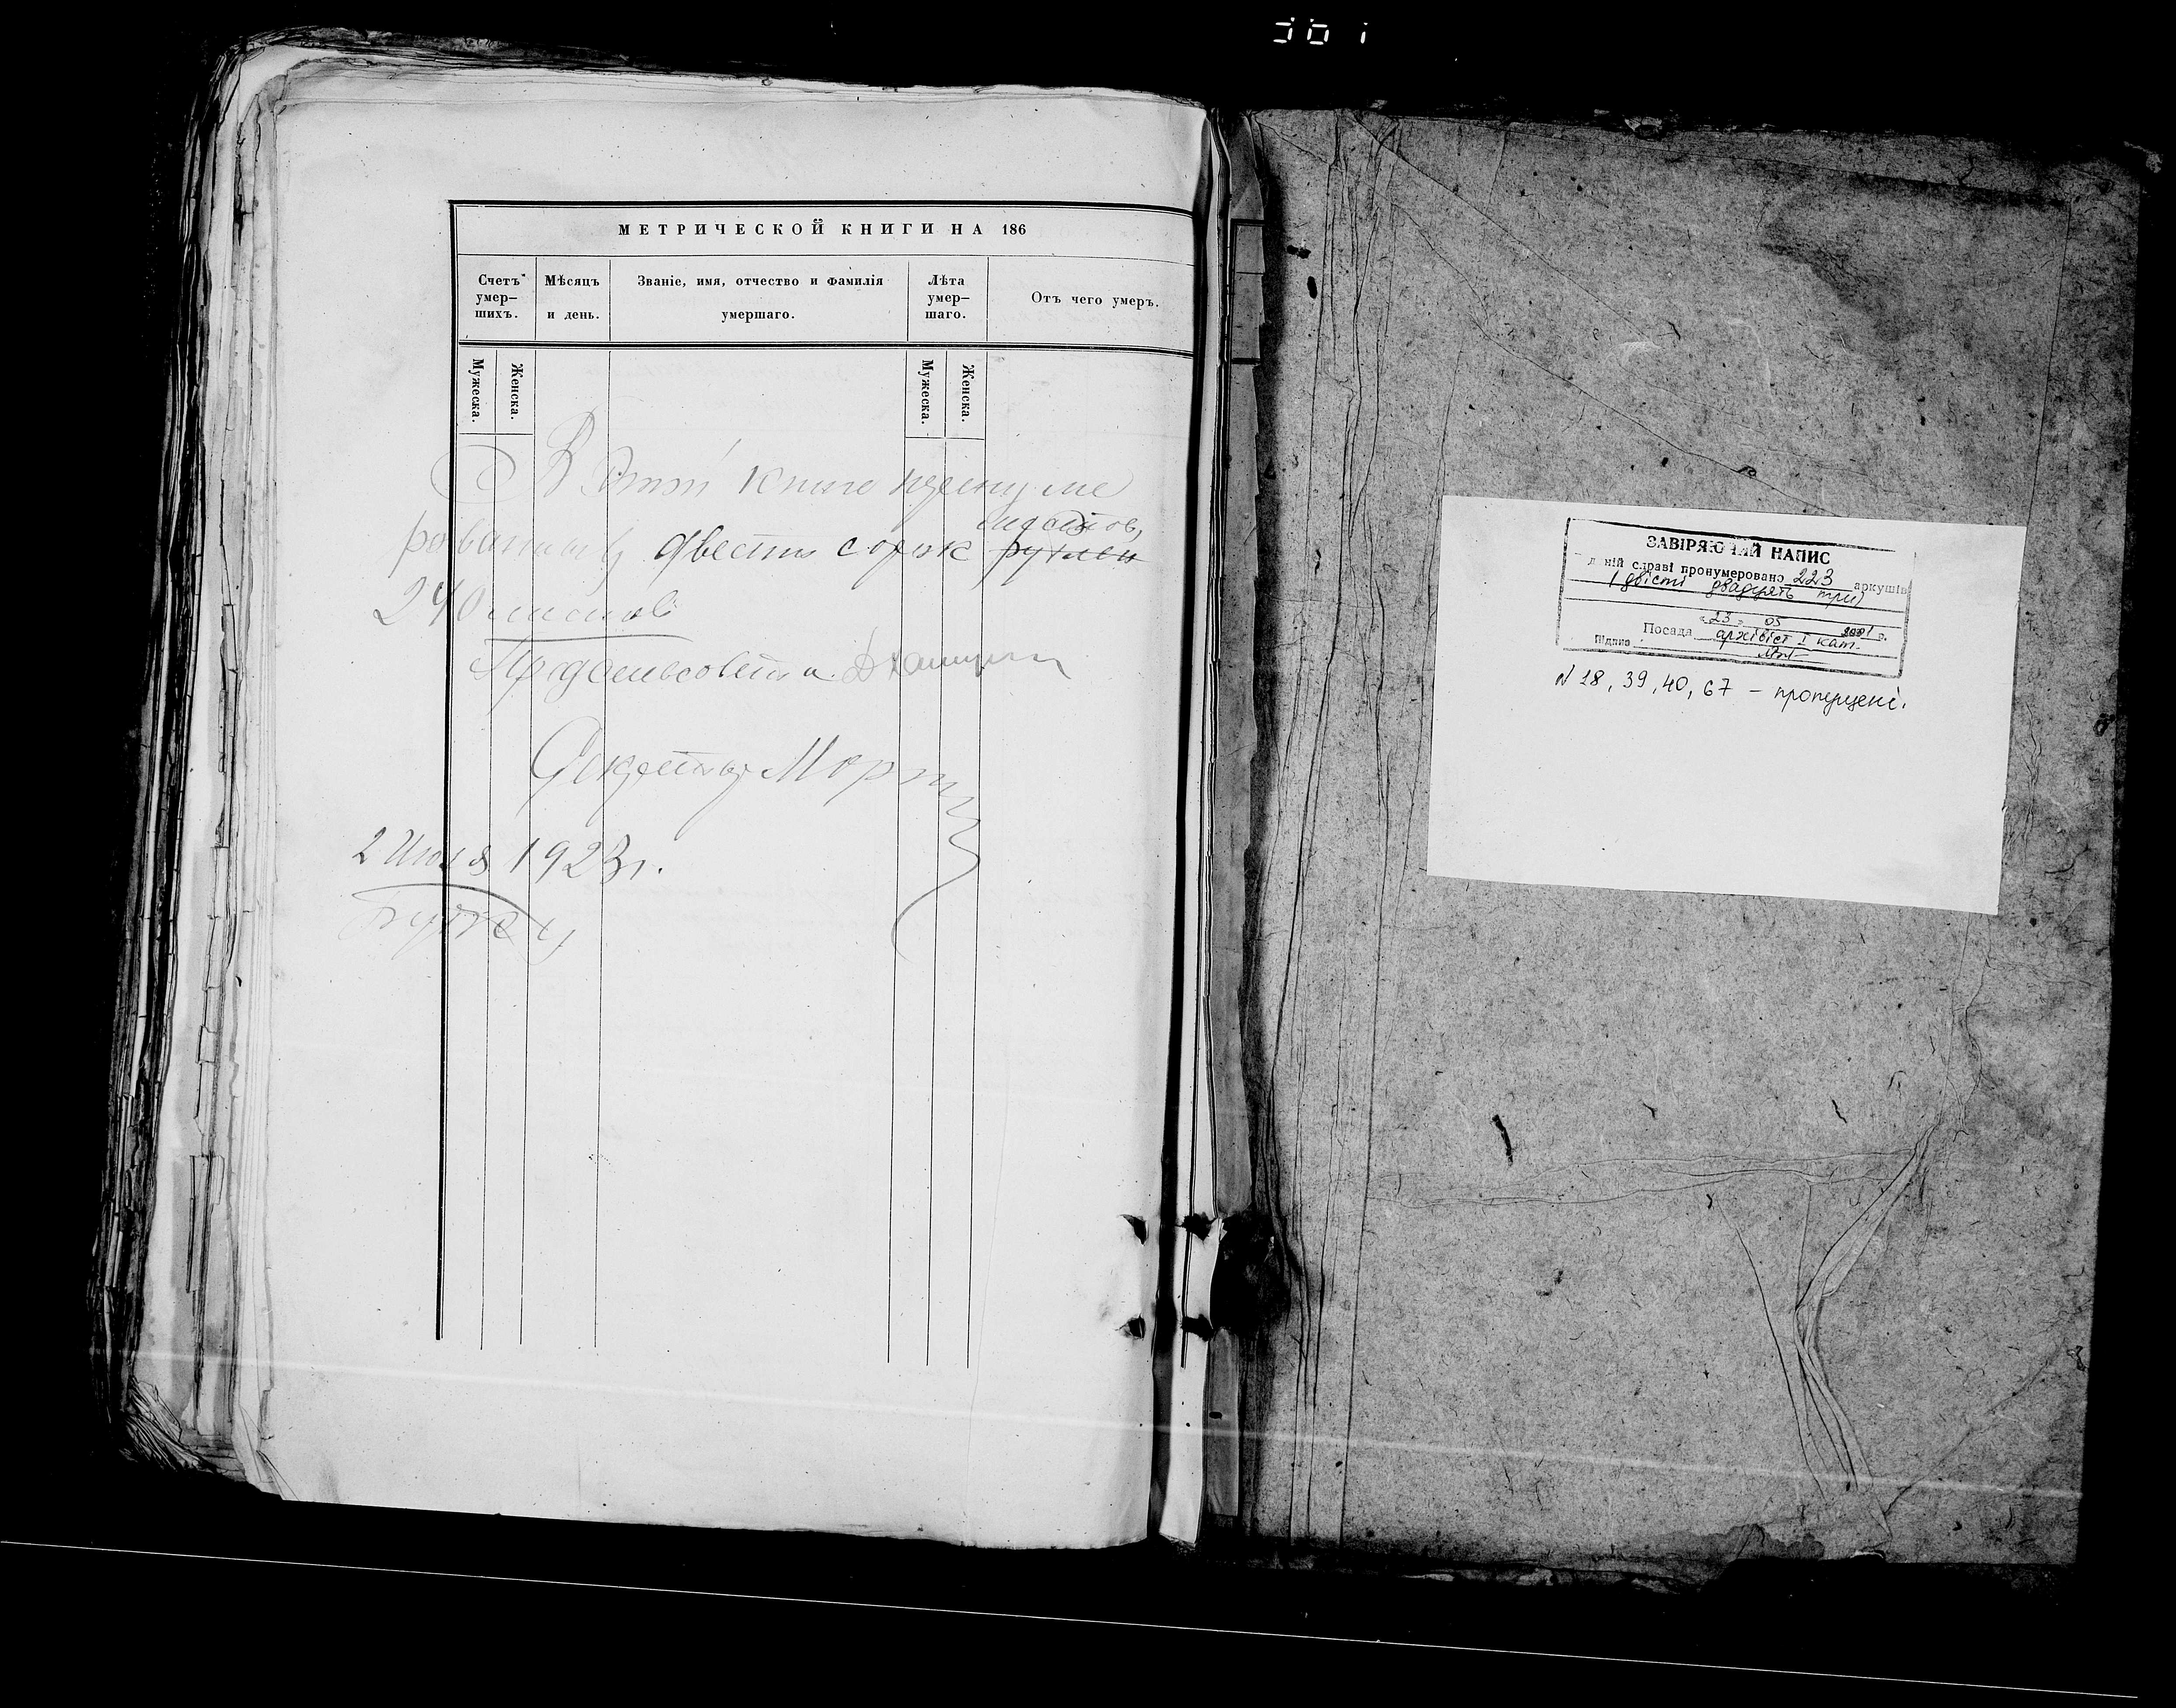 МЕТРИЧЕСКОЙ КНИГИ НА 186
Счетъ умер-шихъ.
Мѣсяцъ и день.
Званіе, имя, отчество и фамилія умершаго.
Лѣта умер-шаго.
Отъ чего умеръ.
Мужеска.
Женска.
Мужеска.
Женска.
В этой книге пронуме
рованных двести сорок рублей
листов,
240 листов
Предсельсовета
Секретарь
2 Июля 1923 г.
ЗАВІРЯЮЧИЙ НАПИС
В даній справі пронумеровано 223 аркушів
(двісті двадцять три)
"23" 05 2001 р.
Посада архівіст I кат.
Підпис
N 28, 39, 40, 67 – пропущені.